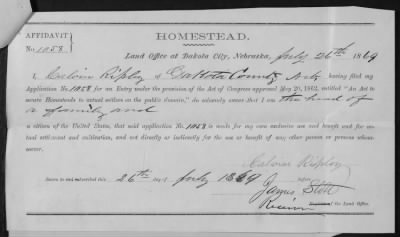 AFFIDAVIT
No. 1058
HOMESTEAD.
Land Office at Dakota City, Nebraska, July 26th 1869
I, Calvin Ripley of Dakota County Neb having filed my
Application No. 1058 for an Entry under the provision of the Act of Congress approved May 20, 1862, entitled "An Act to
secure Homesteads to actual settlers on the public domain," do solemnly swear that I am the head of
a family and
a citizen of the United States, that said application No. 1058 is made for my own exclusive use and benefit and for ac-
tual settlement and cultivation, and not directly or indirectly for the use or benefit of any other person or persons whom-
soever.
Calvin Ripley
Sworn to and subscribed this 26th day July 1869 before
James Stott
Receiver Register of the Land Office.